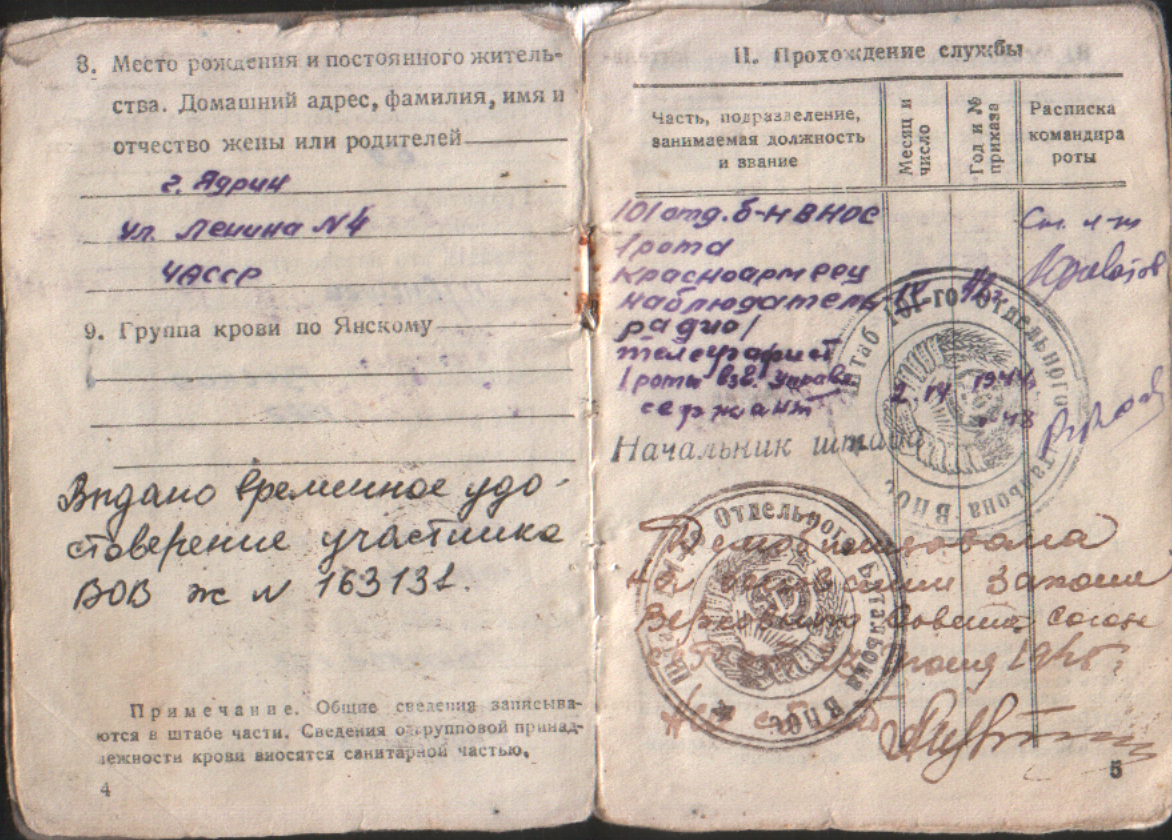 8. Место рождения и постоянного житель-
ства. Домашний адрес, фамилия, имя и
отчество жены или родителей
г. Ядрин
ул. Ленина №4
ЧАССР
9. Группа крови по Янскому
Выдано временное удо-
стоверение участника
ВОВ ж № 163131.
Примечание. Общие сведения записыва-
ются в штабе части. Сведения о групповой принад-
лежности крови вносятся санитарной частью.
4
II. Прохождение службы
Часть, подразделение,
занимаемая должность
и звание
Месяц и
число
Год и №
приказа
Расписка
командира
роты
101 отд. б-н ВНОС
1 рота
красноармеец
наблюдатель
Ст. л-т
радио/
телеграфист
1 роты взв. управ.
сержант
1944
48
Штаб 101-го Отдельного батальона ВНОС
Начальник штаба
Отдельного батальона ВНОС
Демобилизована
на основании закона
Верховного Совета Союза
1945 г.
5